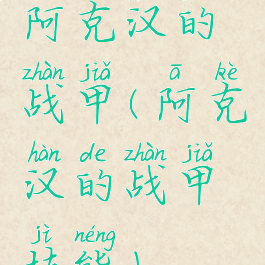 阿克汉的
zhàn jiǎ ā kè
战甲(阿克
hàn de zhàn jiǎ
汉的战甲
jì néng
技能)